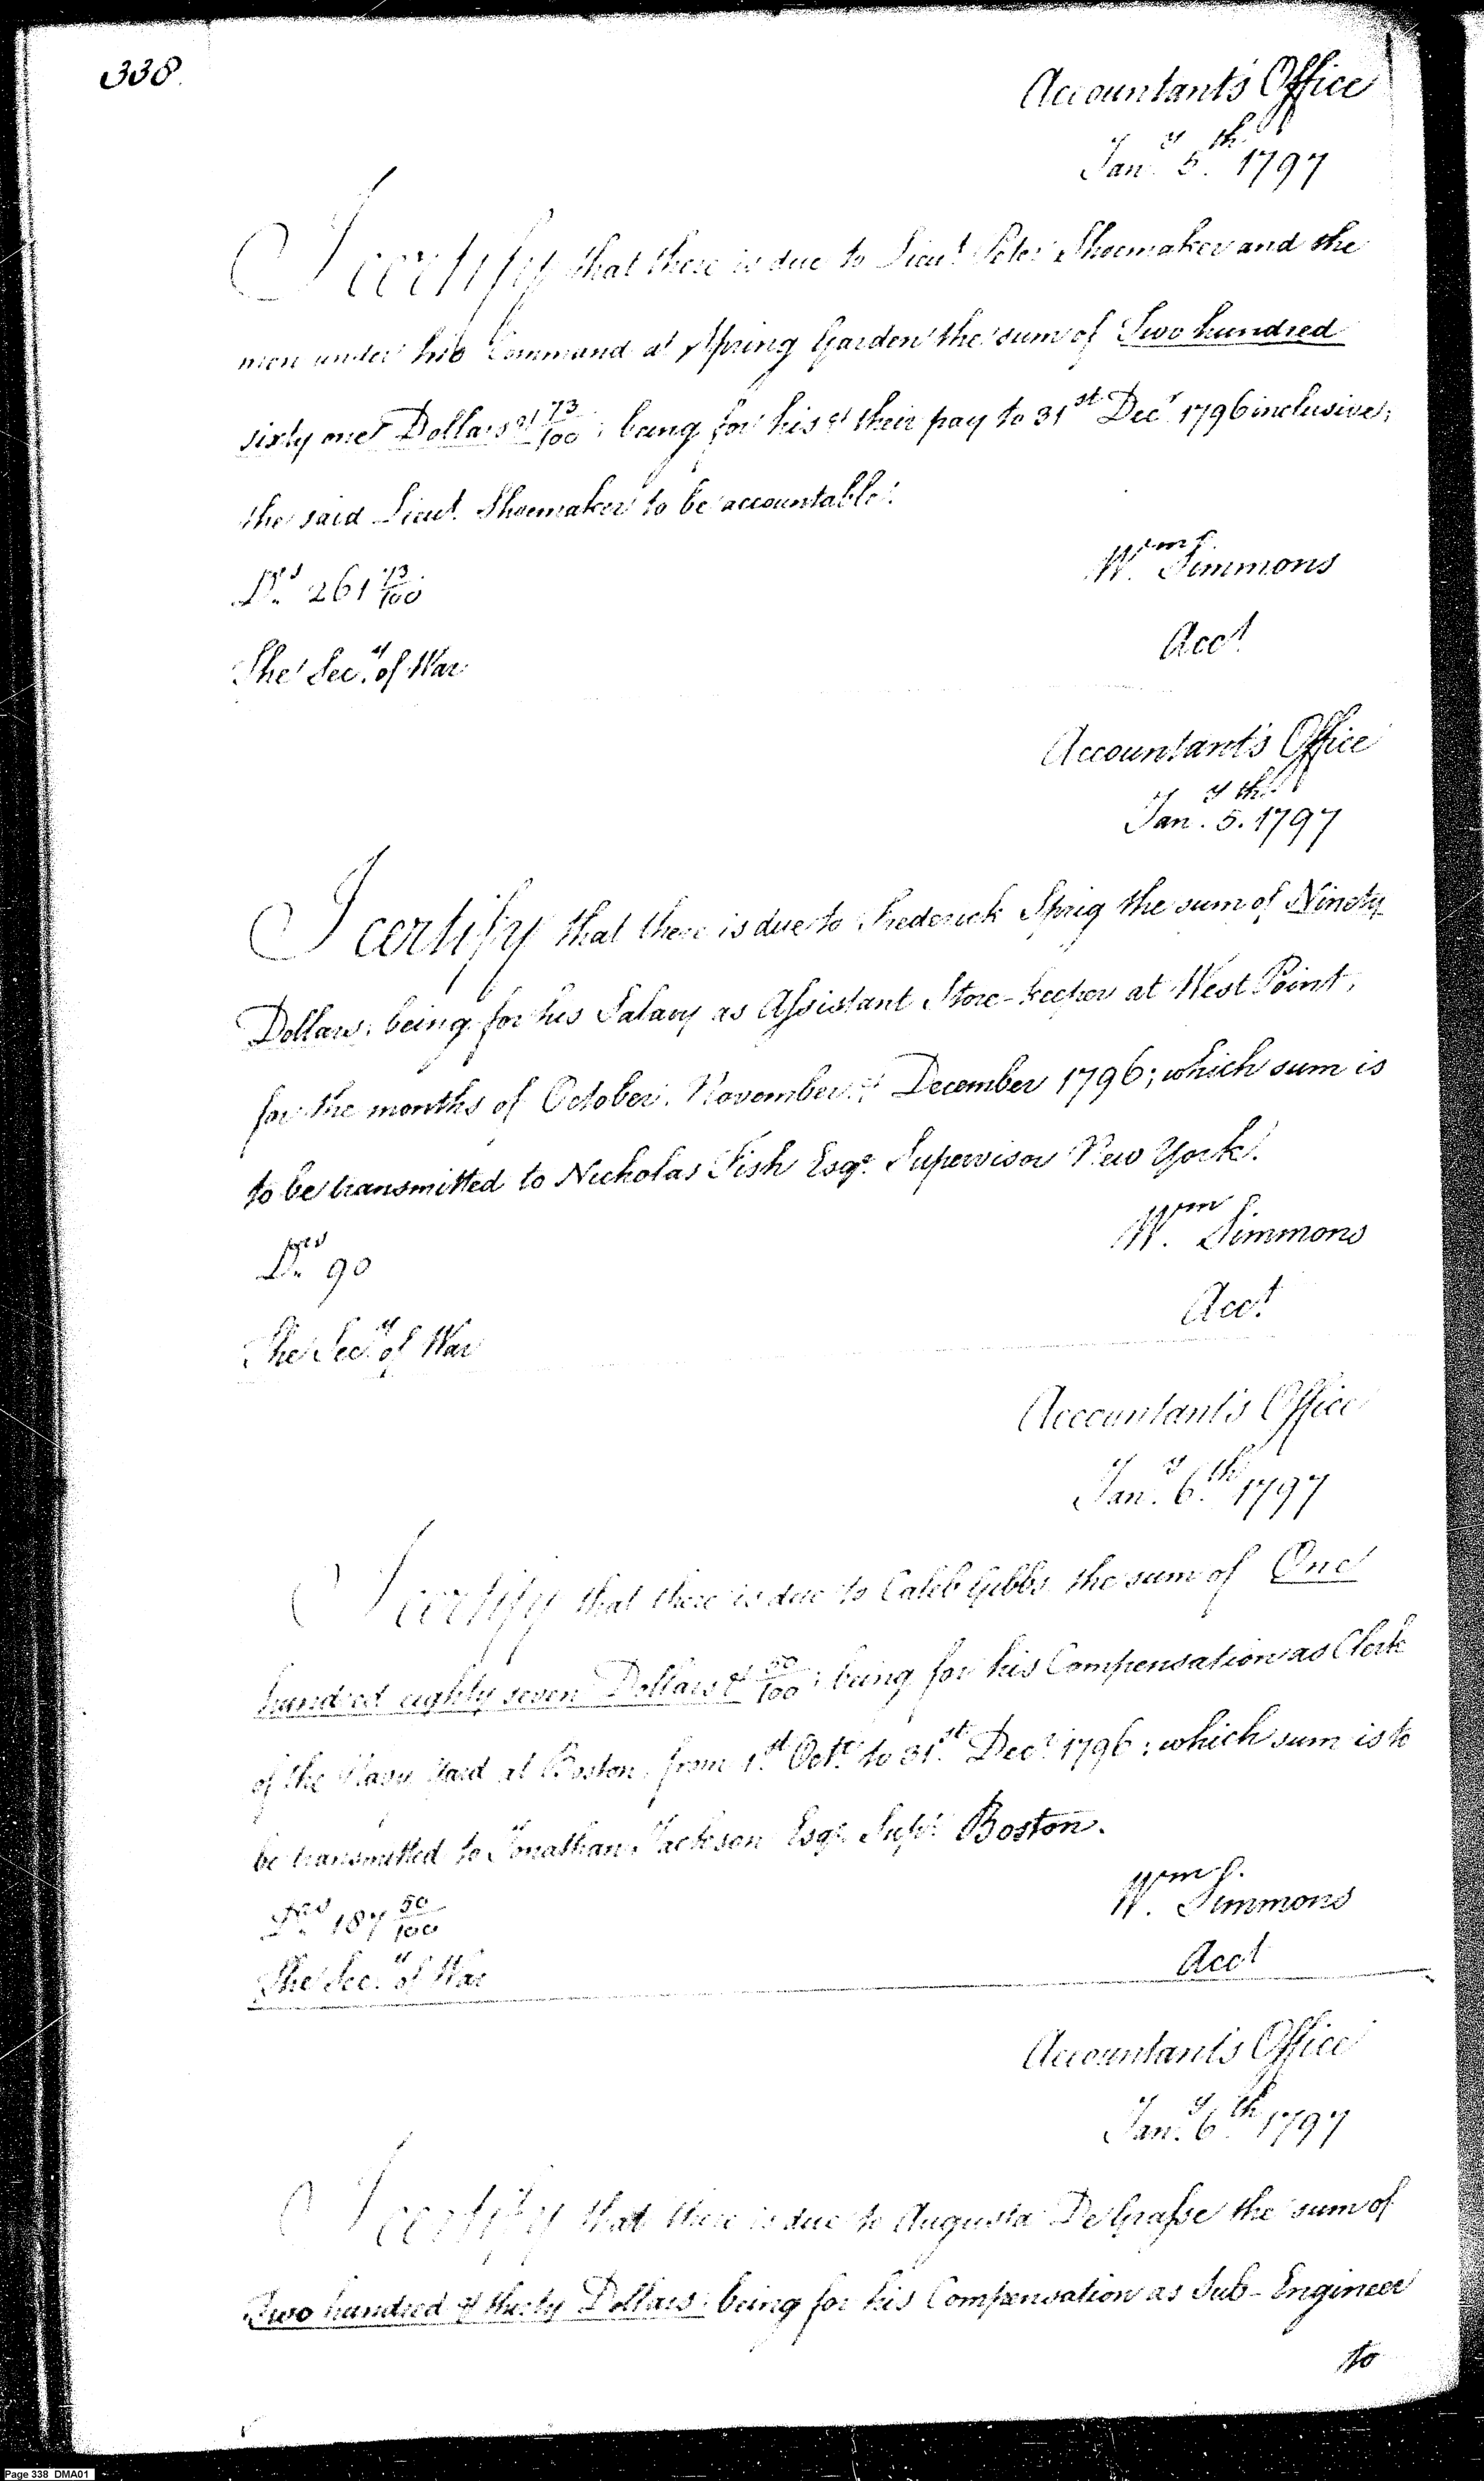 338.
Accountant's Office
Jan.y 5.th 1797
I certify that there is due to Lieut. Peter Shoemaker and the
men under his Command at Spring Garden the sum of Two hundred
sixty one Dollars & 73/100; being for his & their pay to 31st Decr. 1796 inclusive;
the said Lieut. Shoemaker to be accountable.
Wm. Simmons
Drs. 261 73/100
Acct.
The Secy. of War
Accountant's Office
Jan.y 5.th 1797
I certify that there is due to Frederick Sprig the sum of Ninety
Dollars; being for his Salary as Assistant Store-keeper at West Point,
for the months of October, November & December 1796; which sum is
to be transmitted to Nicholas Fish Esqr. Supervisor New York.
Wm. Simmons
Drs. 90
Acct.
The Secy. of War
Accountant's Office
Jan.y 6.th 1797
I certify that there is due to Caleb Gibbs the sum of One
hundred eighty seven Dollars & 50/100; being for his Compensation as Clerk
of the Navy Yard at Boston, from 1st. Octr. to 31st. Decr. 1796; which sum is to
be transmitted to Jonathan Jackson Esqr. Supr. Boston.
Wm. Simmons
Drs. 187 50/100
Acct
The Secy. of War
Accountant's Office
Jan.y 6.th 1797
I certify that there is due to Augusta De Grasse the sum of
Two hundred & thirty Dollars; being for his Compensation as Sub-Engineer
to
Page 338 DMA01